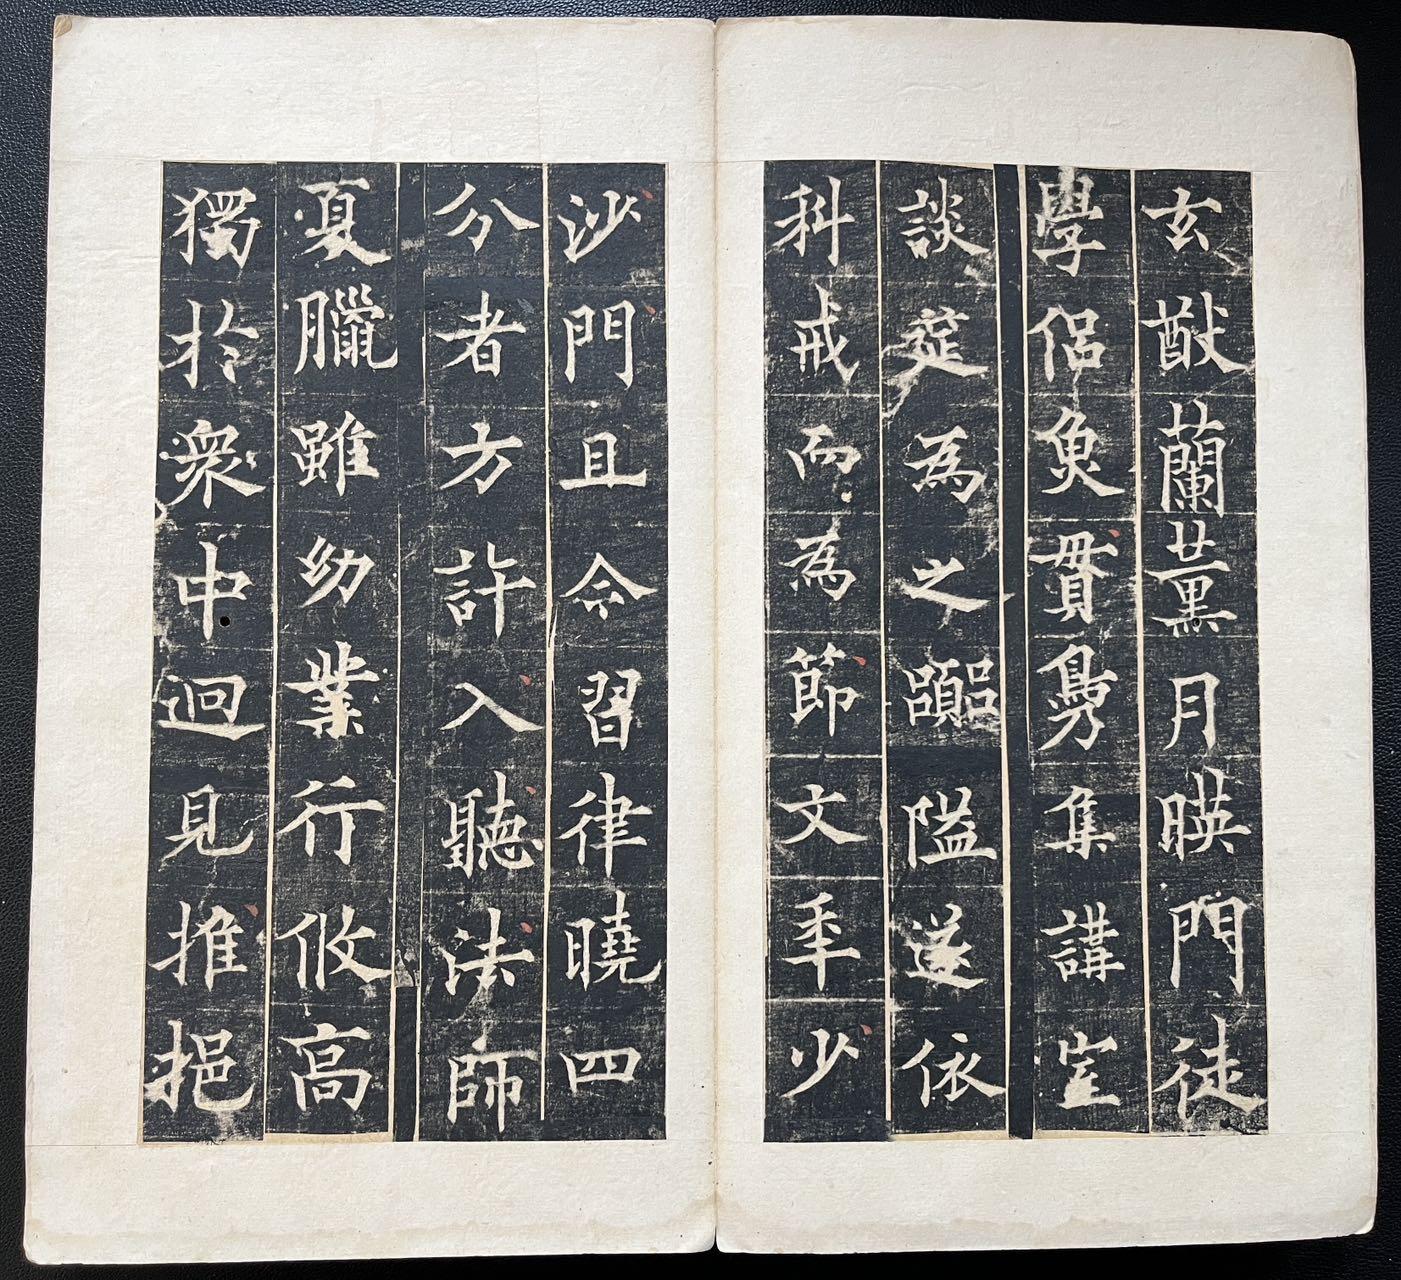 玄猷蘭薰月暎門徒
學侶魚貫鳧集講堂
談筵為之嚻隘遂依
科戒而為節文年少
沙門且令習律曉四
分者方許入聽法師
夏臘雖幼業行攸高
獨於衆中迥見推挹